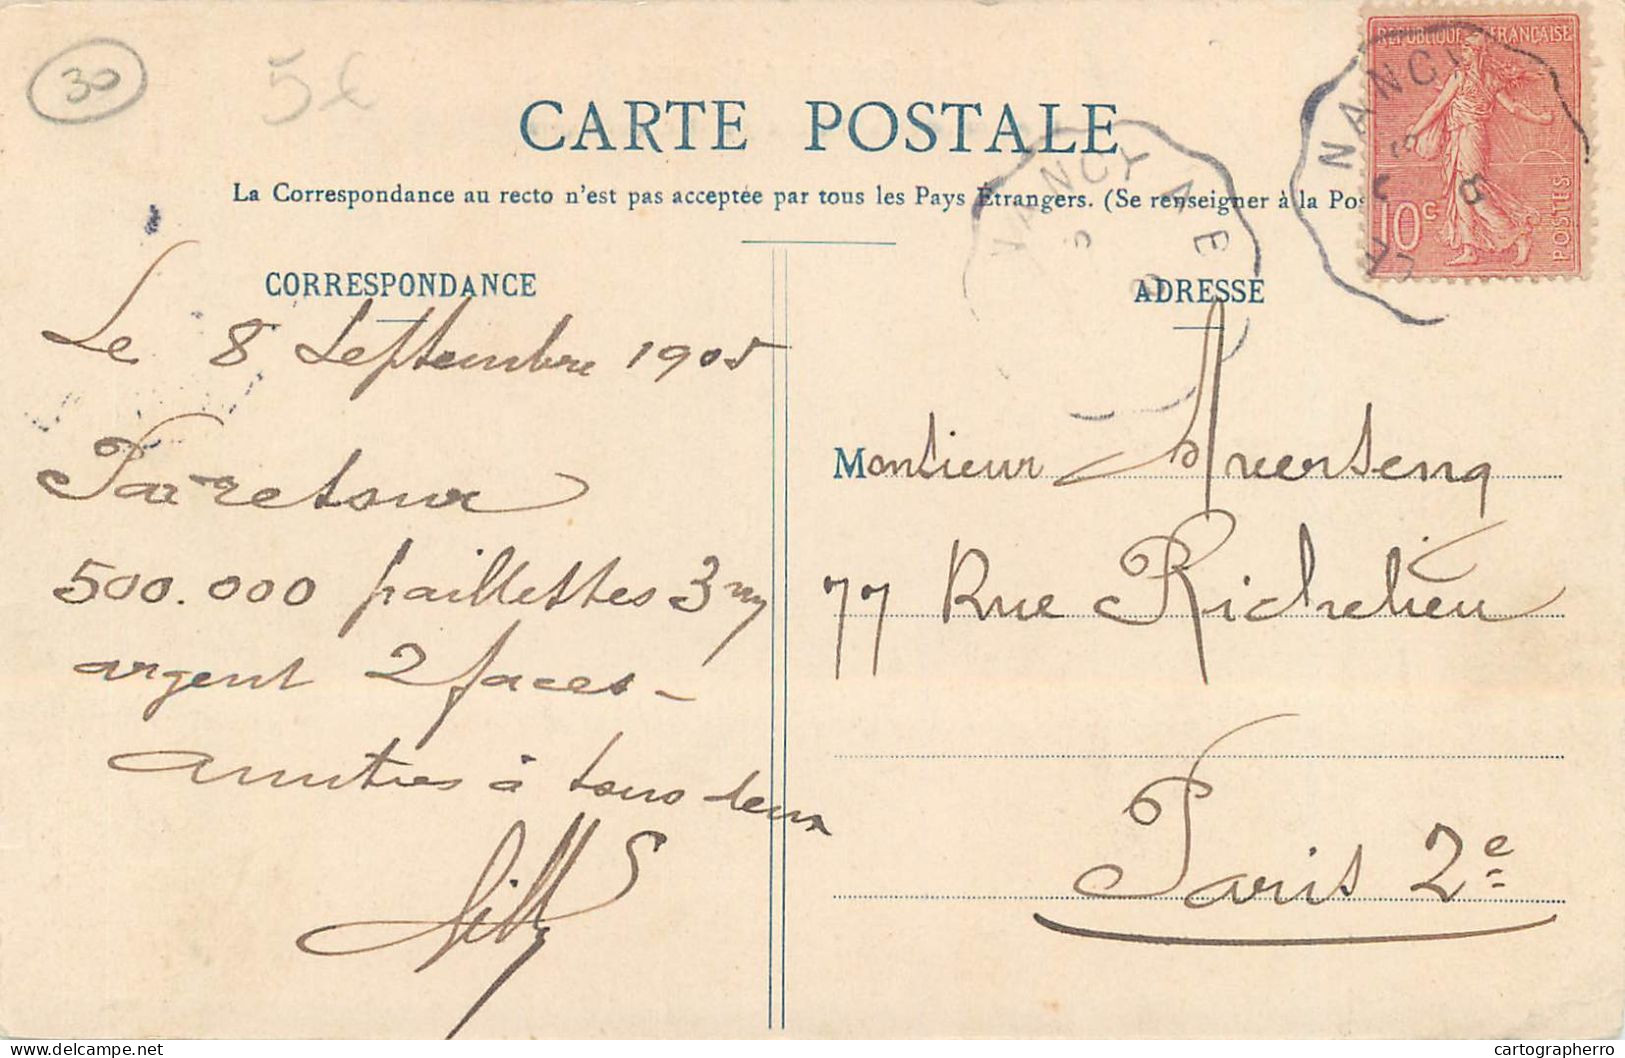 30
5€
CARTE POSTALE
La Correspondance au recto n'est pas acceptée par tous les Pays Étrangers. (Se renseigner à la Pos
CORRESPONDANCE
Le 8 Septembre 1905
Par retour
500.000 paillettes 3 my
argent 2 faces -
amitiés à tous deux
REPUBLIQUE FRANCAISE
10c
POSTES
NANCY
NANCY A E
ADRESSE
Monsieur Aversenq
77 Rue Richelieu
Paris 2e
cartographerro